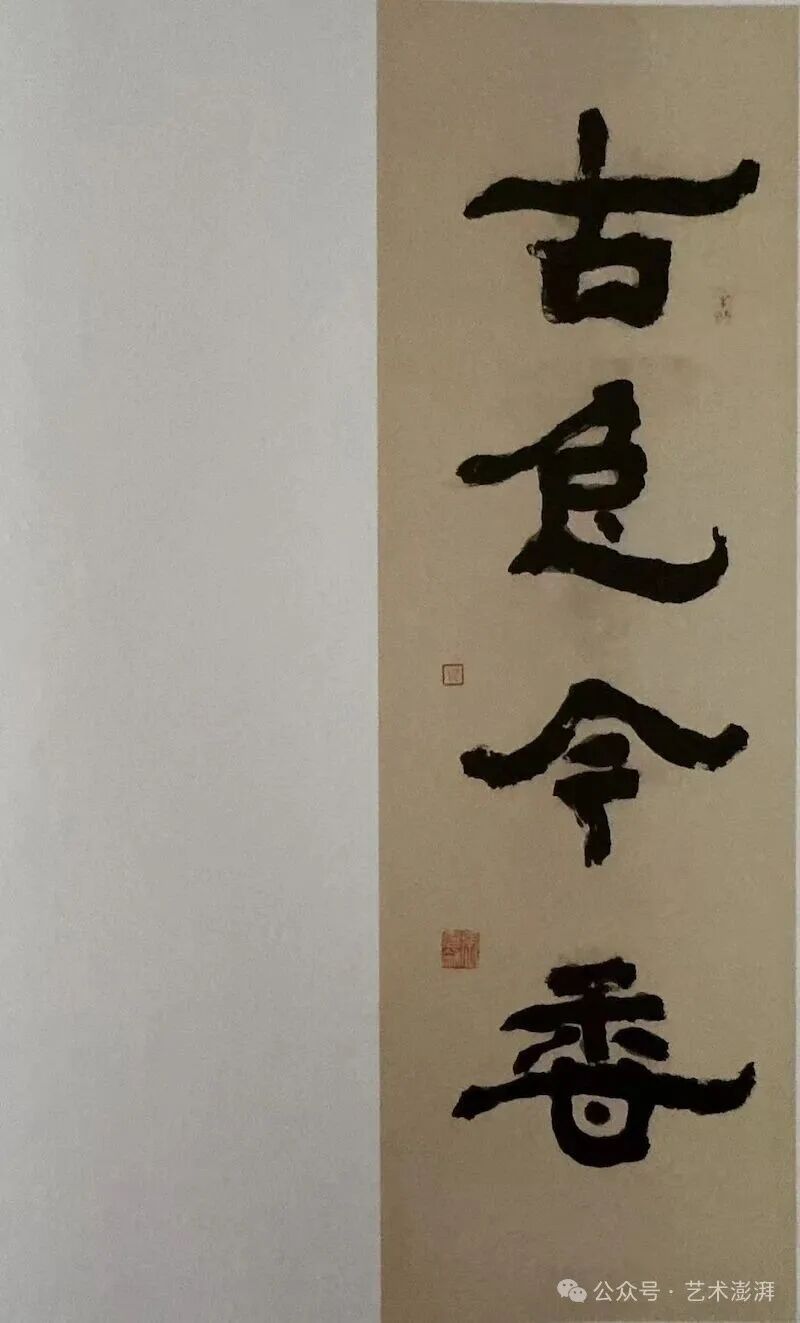 古色今香
公众号 · 艺术澎湃